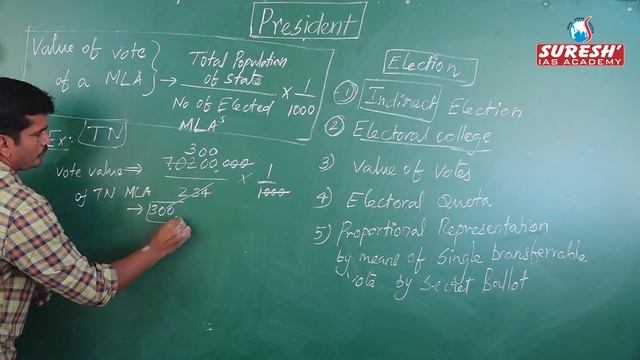 President
SURESH'
IAS ACADEMY
Value of vote
of a MLA → Total Population
of State
No of Elected
MLAs
x 1
1000
Ex: TN
300
vote value ⇒ 70200 000 x 1
of TN MLA 234 1000
→ 300
Election
1) Indirect Election
2) Electoral college
3) Value of Votes
4) Electoral Quota
5) Proportional Representation
by means of Single transferrable
Vote by Secret Ballot